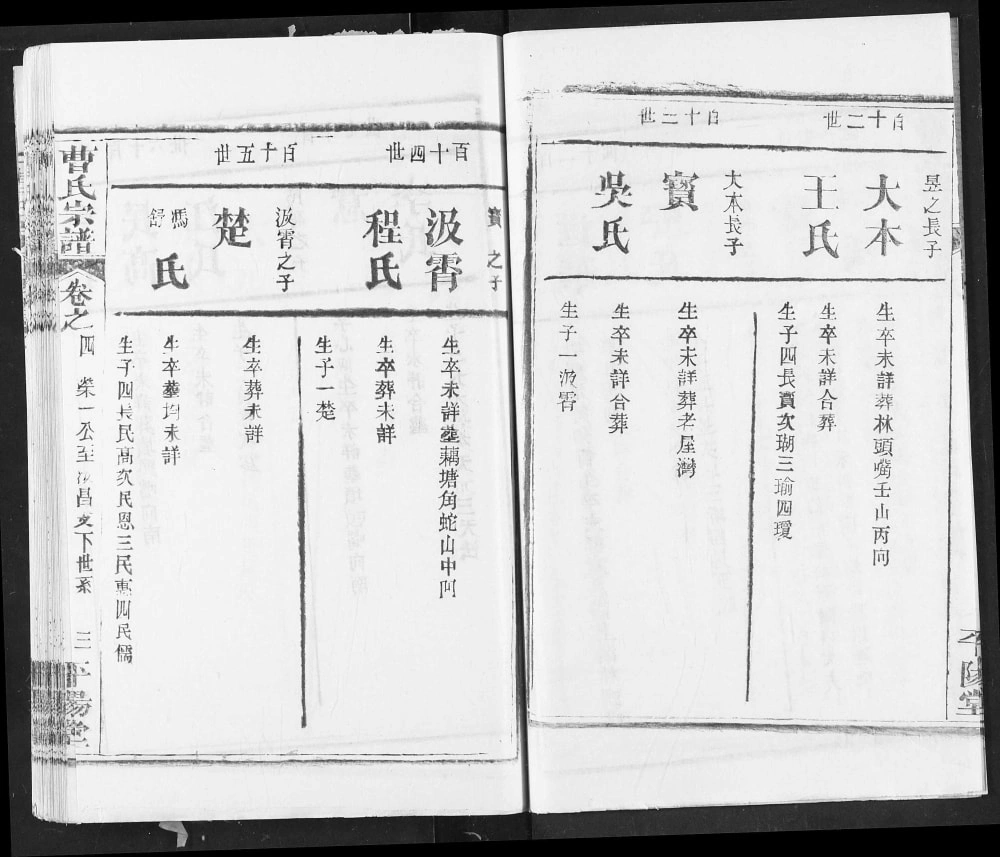 百十二世
昱之長子
大本
生卒未詳葬林頭嘴壬山丙向
王氏
生卒未詳合葬
生子四長寶次瑚三瑜四瓊
百十三世
大本長子
寶
生卒未詳葬老屋灣
吳氏
生卒未詳合葬
生子一汲霄
平陽堂
百十四世
寶之子
汲霄
生卒未詳墓藕塘角蛇山中阿
程氏
生卒葬未詳
生子一楚
百十五世
汲霄之子
楚
生卒葬未詳
馮
舒
氏
生卒墓均未詳
生子四長民高次民恩三民惠四民儒
曹氏宗譜
卷之四
榮一公至汝昌支下世系
三
平陽堂